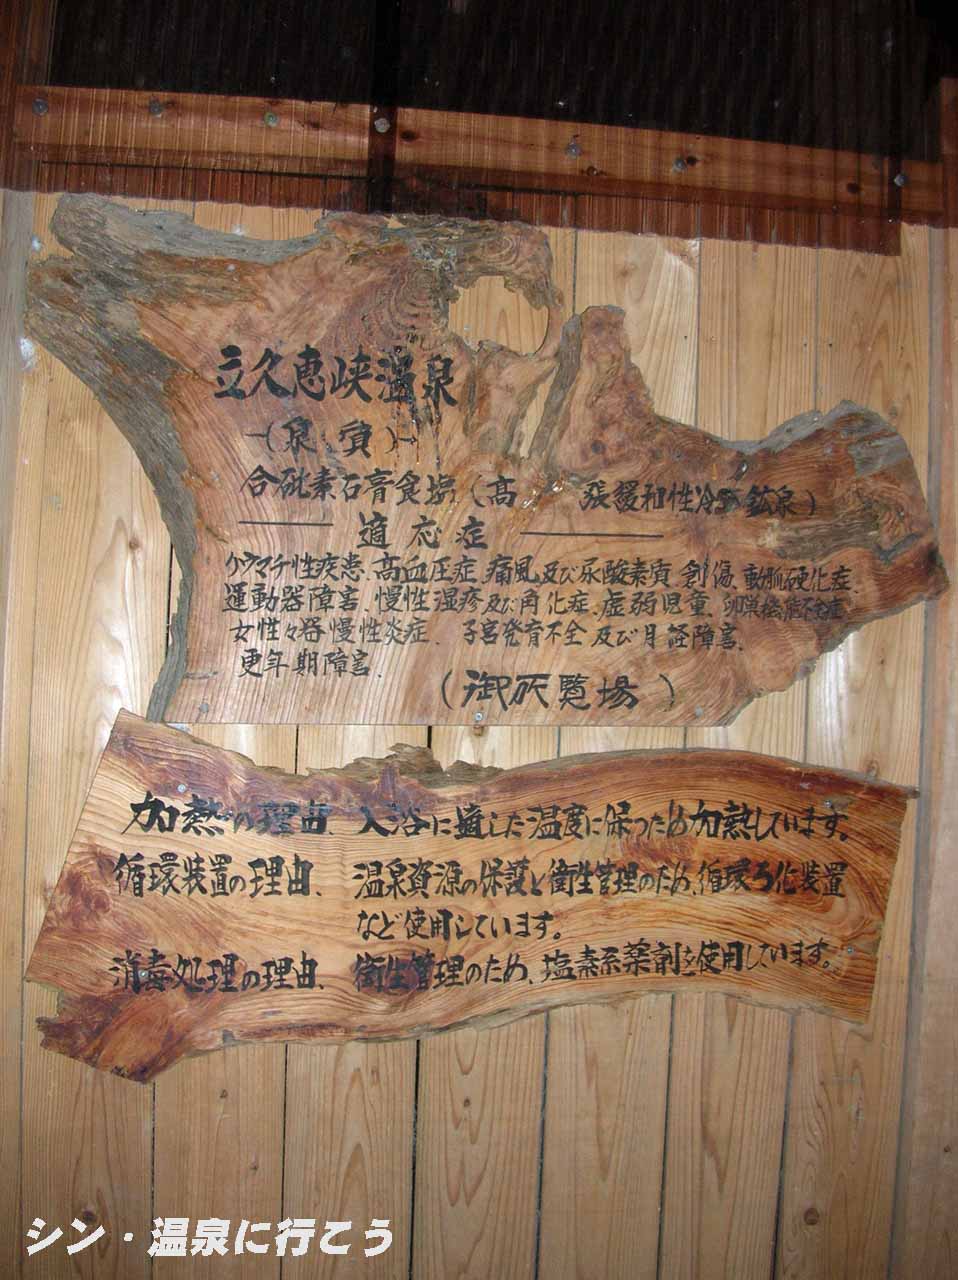 立久恵峡温泉
(泉質)
含硫素石膏食塩(高 張緩和性冷 鉱泉)
適応症
リウマチ性疾患、高血圧症、痛風及び尿酸素質、創傷、動脈硬化症、
運動器障害、慢性湿疹及び角化症、虚弱児童、卵巣機能不全症
女性々器慢性炎症、子宮発育不全及び月経障害、
更年期障害、
(御所覧場)
加熱の理由、入浴に適した温度に保つため加熱しています。
循環装置の理由、温泉資源の保護と衛生管理のため、循環ろ化装置
など使用しています。
消毒処理の理由、衛生管理のため、塩素系薬剤を使用しています。
シン・温泉に行こう